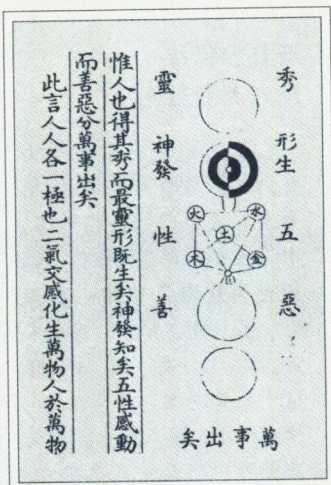 秀 形生 五 惡
水
火
土
金
木
靈 神發 性 善
萬事出矣
惟人也得其秀而最靈形既生矣神發知矣五性感動
而善惡分萬事出矣
此言人人各一極也二氣交感化生萬物人於萬物